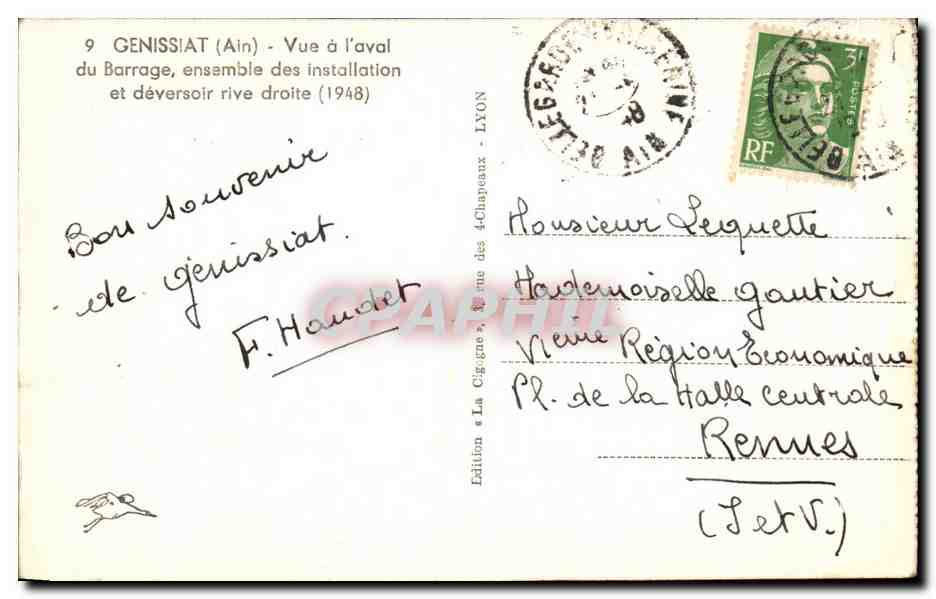 9 GENISSIAT (Ain) - Vue à l'aval
du Barrage, ensemble des installation
et déversoir rive droite (1948)
Bon souvenir
de génissiat.
F. Haudet
Edition « La Cigogne », rue des 4-Chapeaux - LYON
CPAPHIL
BELLEGARDE
AIN
3F
POSTES
RF
BELLEGARDE
Monsieur Lequette
Mademoiselle Gautier
VIème Région Economique
Pl. de la Halle Centrale
Rennes
(I et V.)